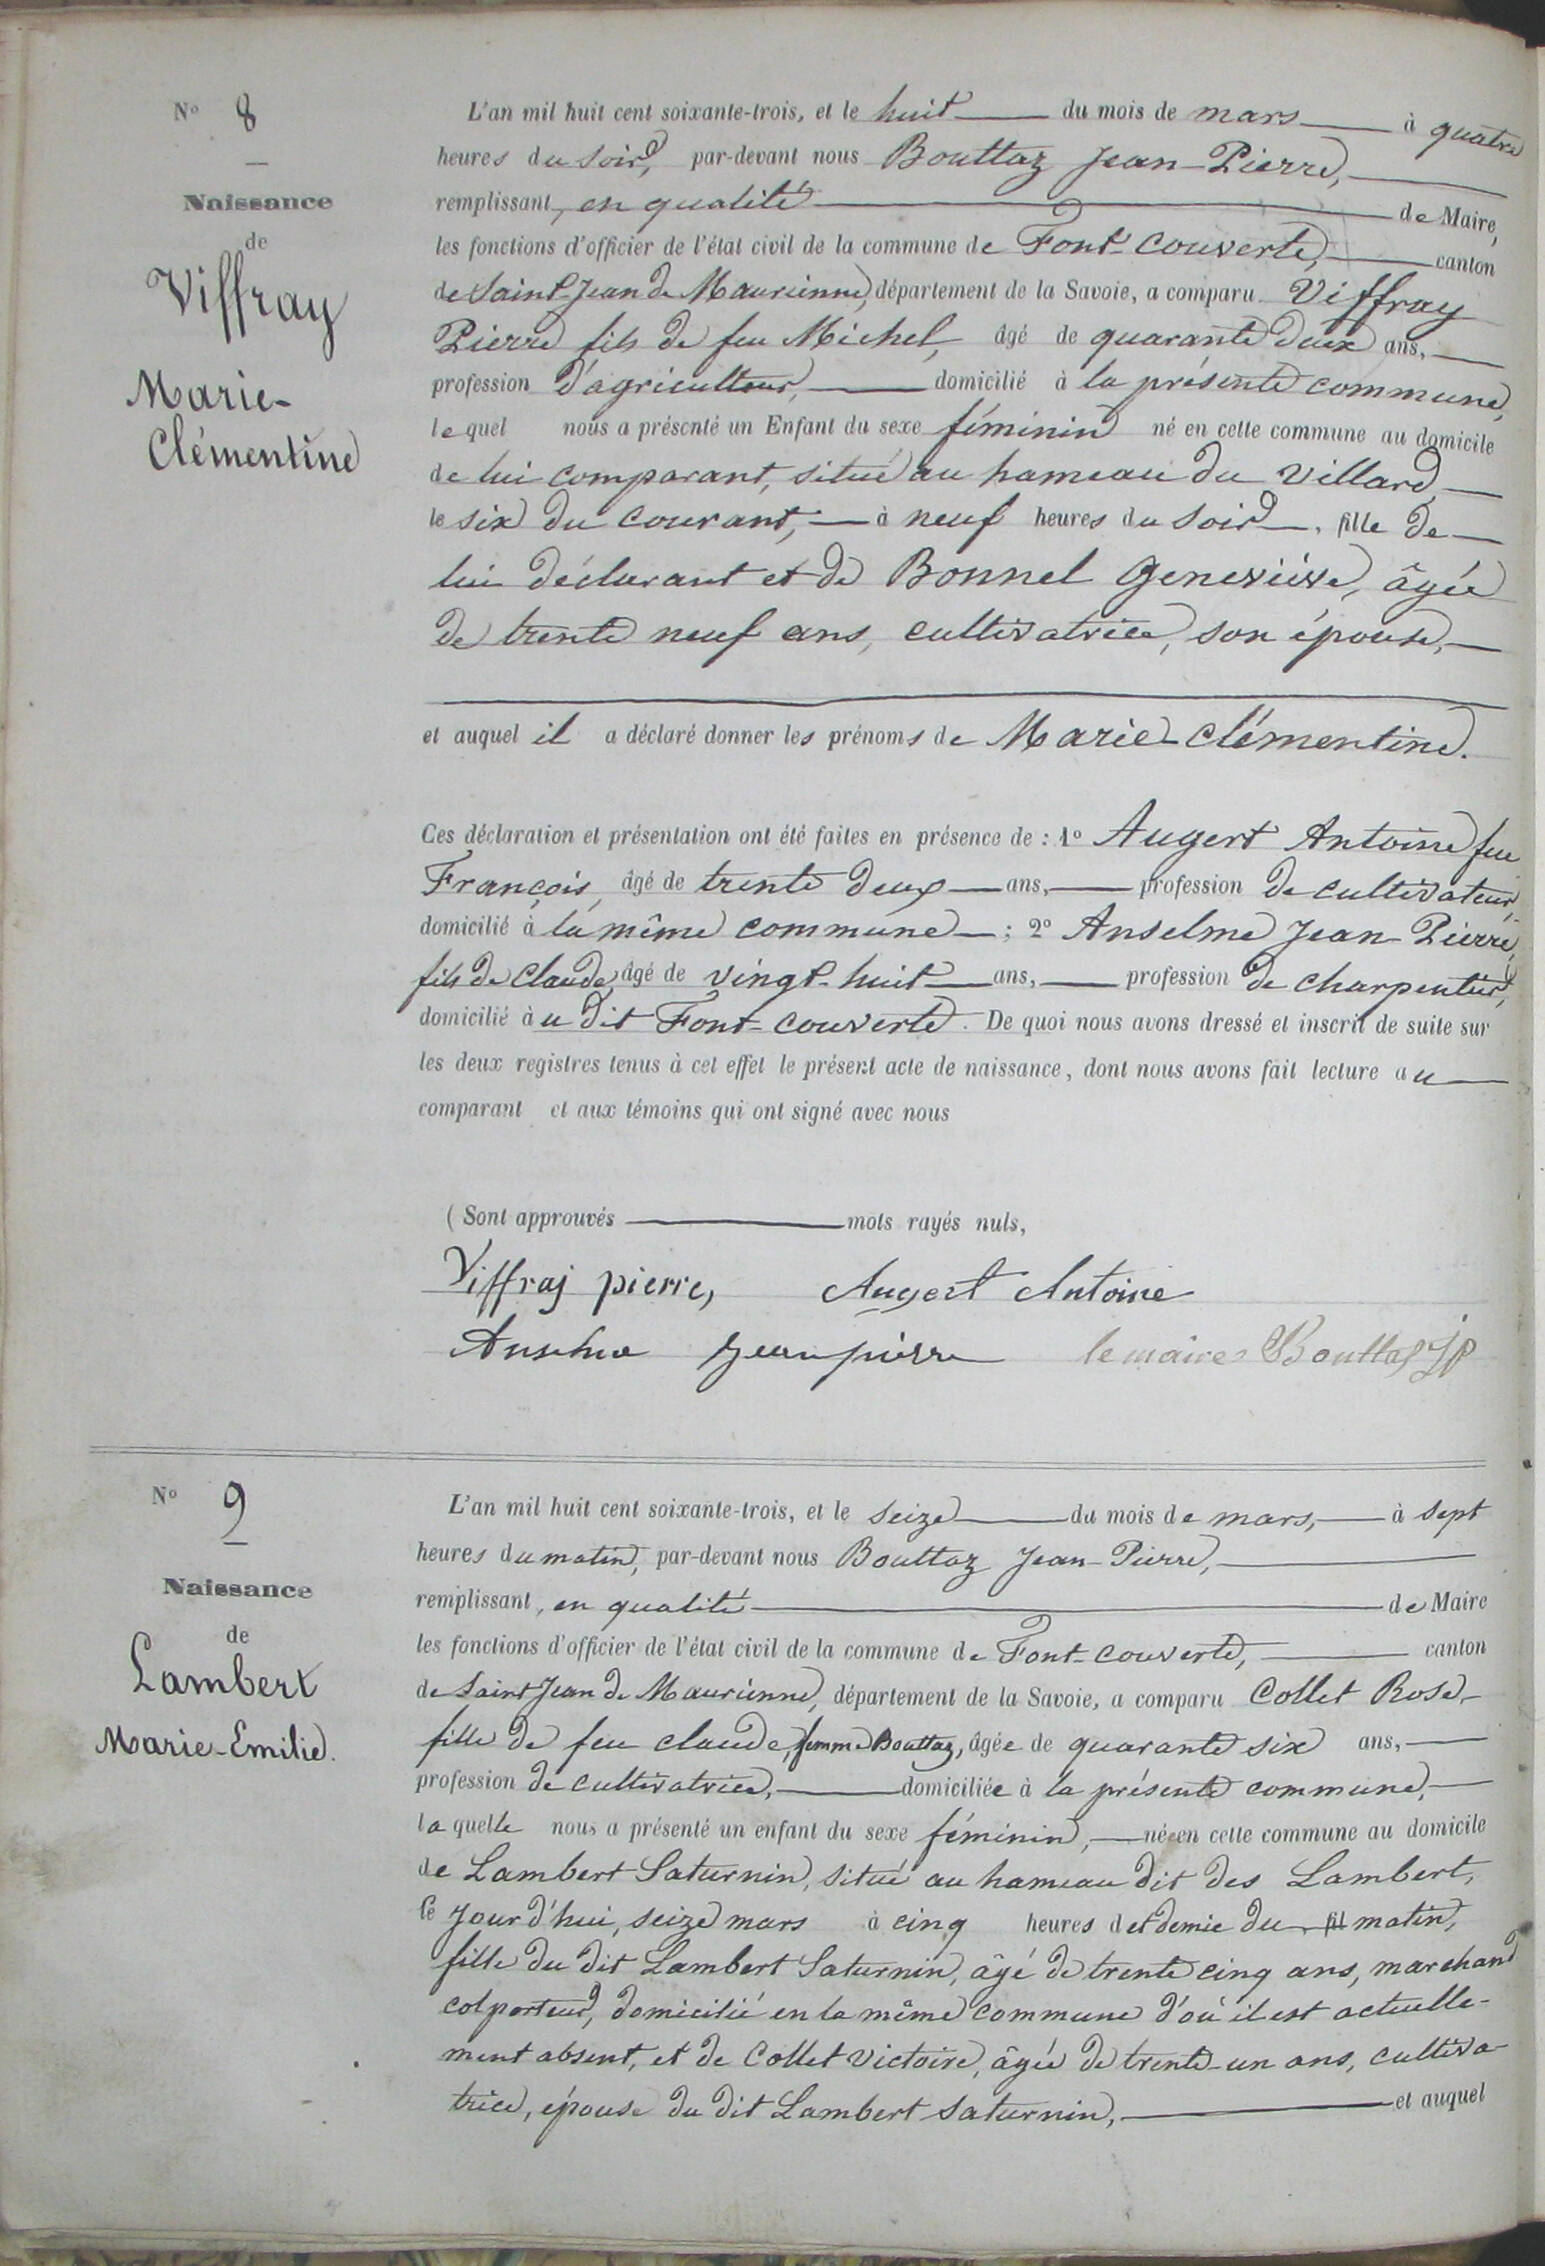 N° 8
Naissance
de
Viffray
Marie-
Clémentine
L'an mil huit cent soixante-trois, et le huit du mois de mars à quatre
heures du soir, par-devant nous Bouttaz Jean-Pierre,
remplissant, en qualité de Maire,
les fonctions d'officier de l'état civil de la commune de Font-couverte, canton
de Saint-Jean de Maurienne, département de la Savoie, a comparu Viffray
Pierre fils de feu Michel, âgé de quarante deux ans,
profession d'agriculteur, domicilié à la présente commune,
lequel nous a présenté un Enfant du sexe féminin né en cette commune au domicile
de lui comparant, situé au hameau du Villard
le six du courant, à neuf heures du soir, fille de
lui déclarant et de Bonnel Geneviève, âgée
de trente neuf ans, cultivatrice, son épouse,
et auquel il a déclaré donner les prénoms de Marie-Clémentine.
Ces déclaration et présentation ont été faites en présence de : 1° Augert Antoine feu
François, âgé de trente deux ans, profession de cultivateur,
domicilié à la même commune ; 2° Anselme Jean Pierre,
fils de Claude, âgé de vingt-huit ans, profession de charpentier,
domicilié au dit Font-couverte. De quoi nous avons dressé et inscrit de suite sur
les deux registres tenus à cet effet le présent acte de naissance, dont nous avons fait lecture au
comparant et aux témoins qui ont signé avec nous
(Sont approuvés mots rayés nuls,
Viffraj pierre, Augert Antoine
Anselme jean pierre le maire Bouttaz JP
N° 9
Naissance
de
Lambert
Marie-Emilie.
L'an mil huit cent soixante-trois, et le seize du mois de mars, à sept
heures du matin, par-devant nous Bouttaz Jean-Pierre,
remplissant, en qualité de Maire
les fonctions d'officier de l'état civil de la commune de Font-couverte, canton
de Saint Jean de Maurienne, département de la Savoie, a comparu Collet Rose,
fille de feu claude, femme Bouttaz, âgée de quarante six ans,
profession de cultivatrice, domiciliée à la présente commune,
laquelle nous a présenté un enfant du sexe féminin, née en cette commune au domicile
de Lambert Saturnin, situé au hameau dit des Lambert,
le jour d'hui, seize mars à cinq heures d et demie du fil matin,
fille du dit Lambert Saturnin, âgé de trente cinq ans, marchand
colporteur, domicilié en la même commune d'où il est actuelle-
ment absent, et de Collet Victoire, âgée de trente-un ans, cultiva-
trice, épouse du dit Lambert Saturnin, et auquel